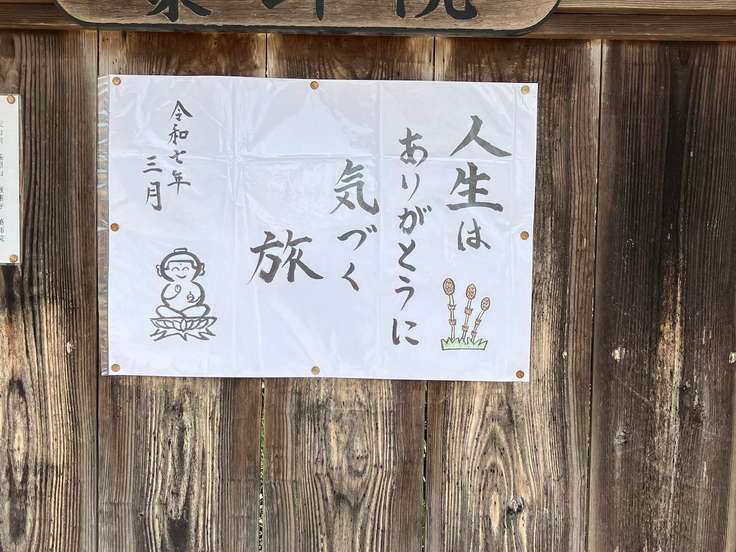 人生は
ありがとうに
気づく
旅
令和七年
三月